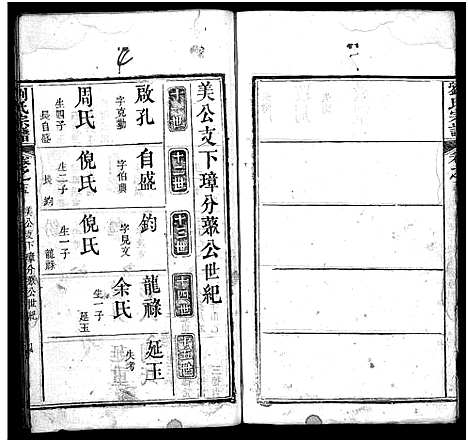 劉氏宗譜
卷之五
美公支下璋分眾公世紀
十一世
啟孔
字克勤
周氏
生四子
長自盛
十二世
自盛
字伯興
倪氏
生二子
長鈞
十三世
鈞
字見文
倪氏
生一子
龍祿
十四世
龍祿
余氏
生一子
延玉
十五世
延玉
失考
劉氏宗譜
卷之五
美公支下璋分眾公世紀